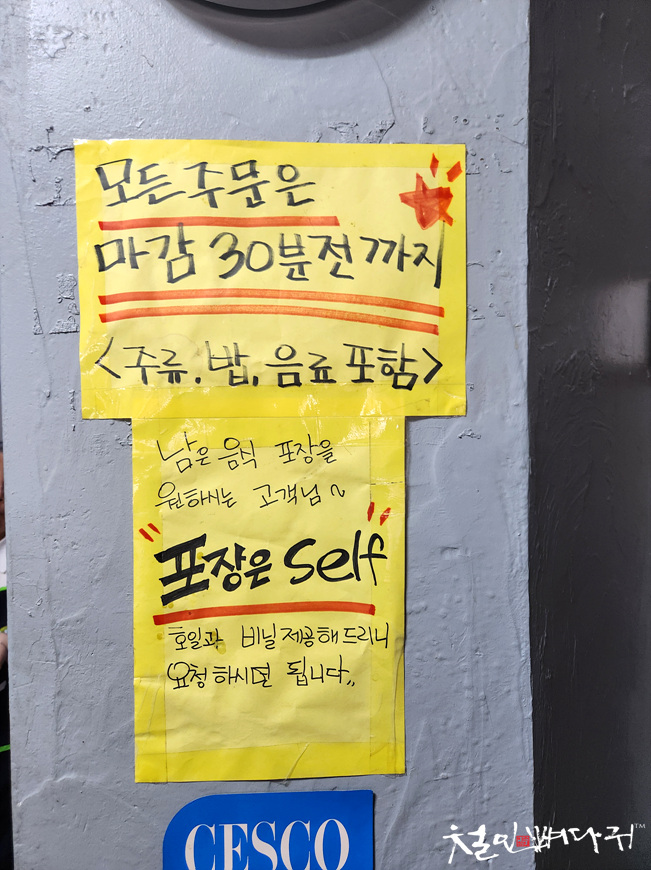 모든 주문은
마감 30분전 까지
<주류. 밥, 음료 포함>
남은 음식 포장을
원하시는 고객님~
"포장은 self"
호일과 비닐 제공해 드리니
요청하시면 됩니다,,
CESCO